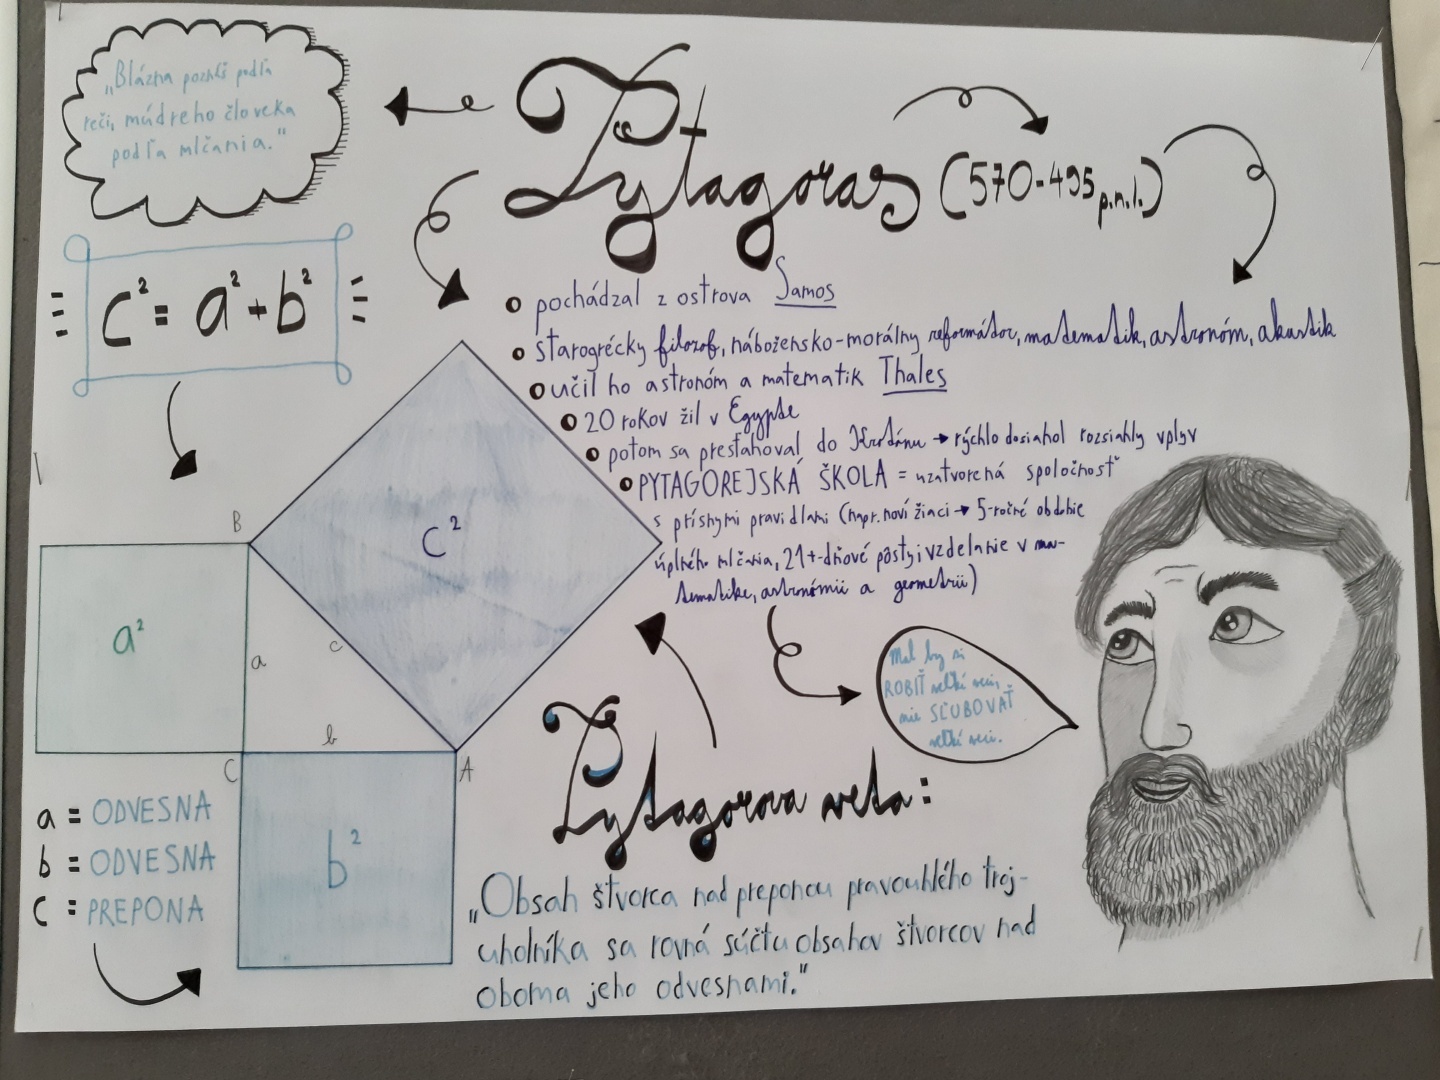 „Blázna poznáš podľa
reči, múdreho človeka
podľa mlčania."
Pytagoras (570-495 p.n.l.)
c² = a² + b²
pochádzal z ostrova Samos
starogrécky filozof, nábožensko-morálny reformátor, matematik, astronóm, akustik
učil ho astronóm a matematik Thales
20 rokov žil v Egypte
potom sa presťahoval do Krotónu → rýchlo dosiahol rozsiahly vplyv
PYTAGOREJSKÁ ŠKOLA = uzatvorená spoločnosť
s prísnymi pravidlami (napr. noví žiaci → 5-ročné obdobie
úplného mlčania, 21+-dňové pôsty i vzdelanie v ma-
tematike, astronómii a geometrii)
B
c²
a²
a
c
b
C
A
b²
a = ODVESNA
b = ODVESNA
c = PREPONA
Mal by si
ROBIŤ veľké veci,
nie SĽUBOVAŤ
veľké veci.
Pytagorova veta:
„Obsah štvorca nad preponou pravouhlého troj-
uholníka sa rovná súčtu obsahov štvorcov nad
oboma jeho odvesnami."